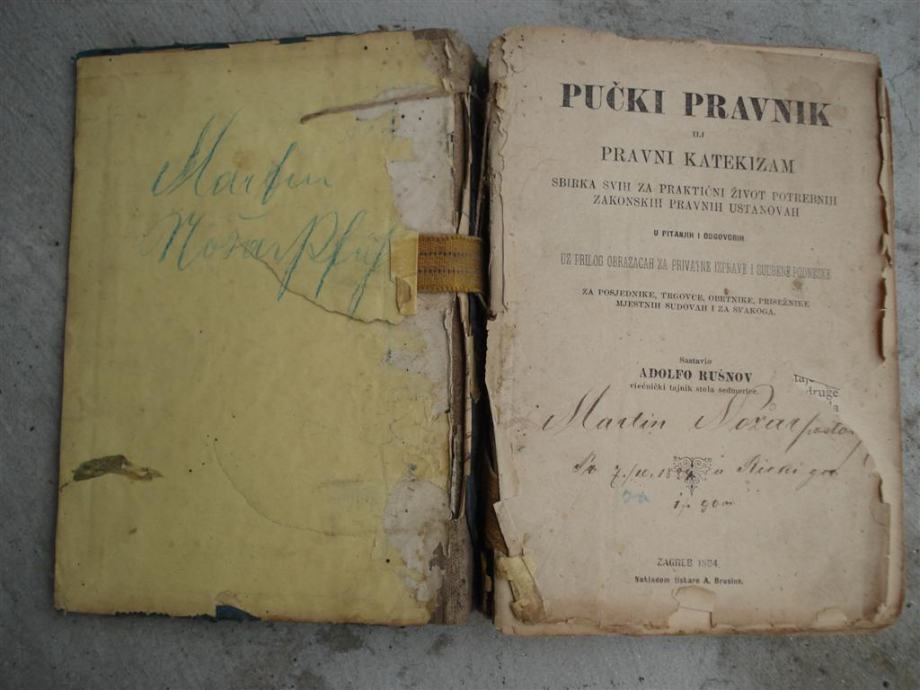 Martin
Možar
PUČKI PRAVNIK
ILI
PRAVNI KATEKIZAM
SBIRKA SVIH ZA PRAKTIČNI ŽIVOT POTREBNIH
ZAKONSKIH PRAVNIH USTANOVAH
U PITANJIH I ODGOVORIH
UZ PRILOG OBRAZACAH ZA PRIVATNE IZPRAVE I SUDBENE PODNESKE
ZA POSJEDNIKE, TRGOVCE, OBRTNIKE, PRISEŽNIKE
MJESTNIH SUDOVAH I ZA SVAKOGA.
Sastavio
ADOLFO RUŠNOV
viećnički tajnik stola sedmorice.
druge
Martin Možar
ZAGREB 1884.
Nakladom tiskare A. Brusine.